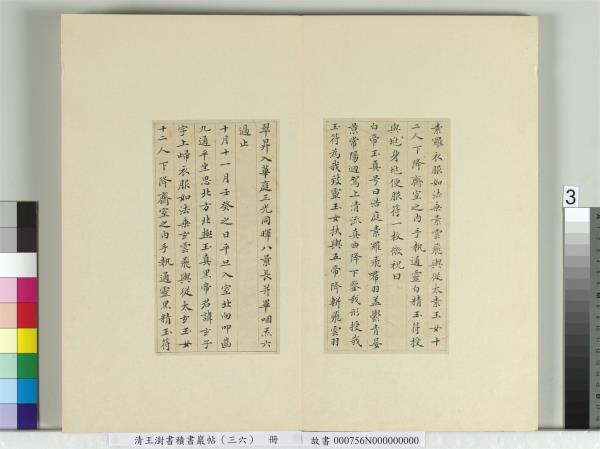 素羅衣服如法乘素雲飛輿從太素玉女十
二人下降齋室之內手執通靈白精玉符授
與兆身兆便服符一枚微祝曰
白帝玉真号曰浩庭素羅飛帬羽蓋鬱青晏
景常陽迴駕上清流真曲降下鑒我形授我
玉符為我致靈玉女扶輿五帝降軿飛雲羽
翠昇入華庭三光同暉八景長并畢咽炁六
過止
十月十一月壬癸之日平旦入室北向叩齒
九通平坐思北方北極玉真黑帝君諱玄子
字上歸衣服如法乘玄雲飛輿從太玄玉女
十二人下降齋室之內手執通靈黑精玉符
3
清王澍書積書巖帖（三六） 冊 故書 000756N000000000